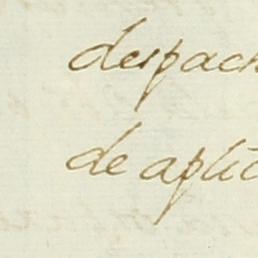 despach
de aplic